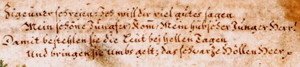 Zigeuner schreien: ich will dir viel gutes sagen
Mein schöne Jungfer kom, Mein hübscher Junger Herr
Damit bestehlen sie die Leut bei hellen Tagen
Und bringen sie umbs gelt, das schwarze Höllen Heer